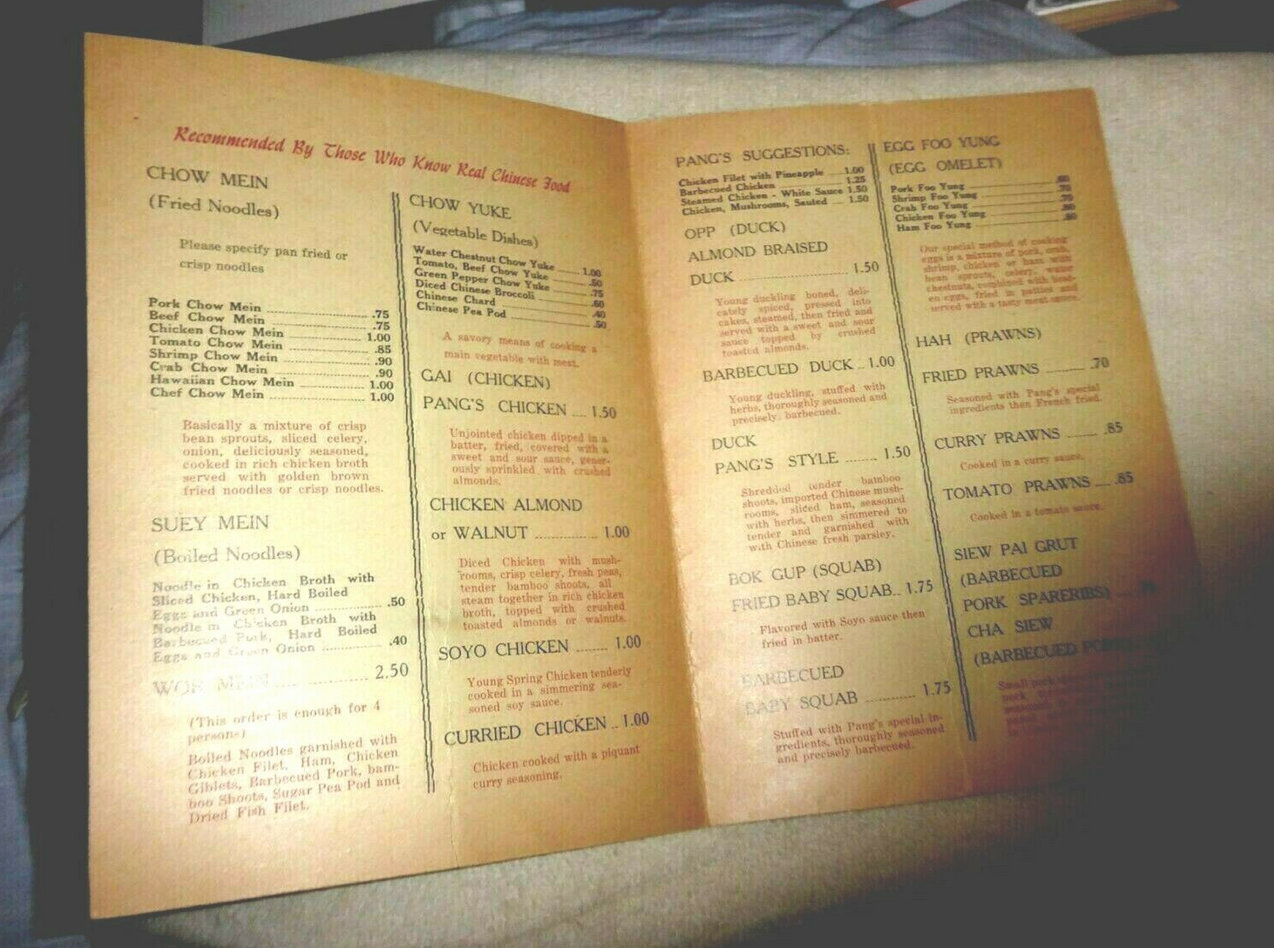 Recommended By Those Who Know Real Chinese Food
CHOW MEIN
(Fried Noodles)
Please specify pan fried or
crisp noodles
Pork Chow Mein .75
Beef Chow Mein .75
Chicken Chow Mein 1.00
Tomato Chow Mein .85
Shrimp Chow Mein .90
Crab Chow Mein .90
Hawaiian Chow Mein 1.00
Chef Chow Mein 1.00
Basically a mixture of crisp
bean sprouts, sliced celery,
onion, deliciously seasoned,
cooked in rich chicken broth
served with golden brown
fried noodles or crisp noodles.
SUEY MEIN
(Boiled Noodles)
Noodle in Chicken Broth with
Sliced Chicken, Hard Boiled
Eggs and Green Onion .50
Noodle in Chicken Broth with
Barbecued Pork, Hard Boiled
Eggs and Green Onion .40
WOR MEIN 2.50
(This order is enough for 4
persons)
Boiled Noodles garnished with
Chicken Filet, Ham, Chicken
Giblets, Barbecued Pork, bam-
boo Shoots, Sugar Pea Pod and
Dried Fish Filet.
CHOW YUKE
(Vegetable Dishes)
Water Chestnut Chow Yuke 1.00
Tomato, Beef Chow Yuke .50
Green Pepper Chow Yuke .75
Diced Chinese Broccoli .60
Chinese Chard .40
Chinese Pea Pod .50
A savory means of cooking a
main vegetable with meat.
GAI (CHICKEN)
PANG'S CHICKEN 1.50
Unjointed chicken dipped in a
batter, fried, covered with a
sweet and sour sauce, gener-
ously sprinkled with crushed
almonds.
CHICKEN ALMOND
or WALNUT 1.00
Diced Chicken with mush-
rooms, crisp celery, fresh peas,
tender bamboo shoots, all
steam together in rich chicken
broth, topped with crushed
toasted almonds or walnuts.
SOYO CHICKEN 1.00
Young Spring Chicken tenderly
cooked in a simmering sea-
soned soy sauce.
CURRIED CHICKEN 1.00
Chicken cooked with a piquant
curry seasoning.
PANG'S SUGGESTIONS:
Chicken Filet with Pineapple 1.00
Barbecued Chicken 1.25
Steamed Chicken - White Sauce 1.50
Chicken, Mushrooms, Sauted 1.50
OPP (DUCK)
ALMOND BRAISED
DUCK 1.50
Young duckling boned, deli-
cately spiced, pressed into
cakes, steamed, then fried and
served with a sweet and sour
sauce topped by crushed
toasted almonds.
BARBECUED DUCK 1.00
Young duckling, stuffed with
herbs, thoroughly seasoned and
precisely barbecued.
DUCK
PANG'S STYLE 1.50
Shredded tender bamboo
shoots, imported Chinese mush-
rooms, sliced ham, seasoned
with herbs, then simmered to
tender and garnished with
with Chinese fresh parsley.
BOK GUP (SQUAB)
FRIED BABY SQUAB 1.75
Flavored with Soyo sauce then
fried in batter.
BARBECUED
BABY SQUAB 1.75
Stuffed with Pang's special in-
gredients, thoroughly seasoned
and precisely barbecued.
EGG FOO YUNG
(EGG OMELET)
Pork Foo Yung
Shrimp Foo Yung
Crab Foo Yung
Chicken Foo Yung
Ham Foo Yung
Our special method of cooking
eggs is a mixture of pork, crab,
shrimp, chicken or ham with
bean sprouts, celery, water
chestnuts, combined with beat-
en eggs, fried in patties and
served with a tasty meat sauce.
HAH (PRAWNS)
FRIED PRAWNS .70
Seasoned with Pang's special
ingredients then French fried.
CURRY PRAWNS .85
Cooked in a curry sauce.
TOMATO PRAWNS .85
Cooked in a tomato sauce.
SIEW PAI GRUT
(BARBECUED
PORK SPARERIBS)
CHA SIEW
(BARBECUED
Small pork
pork